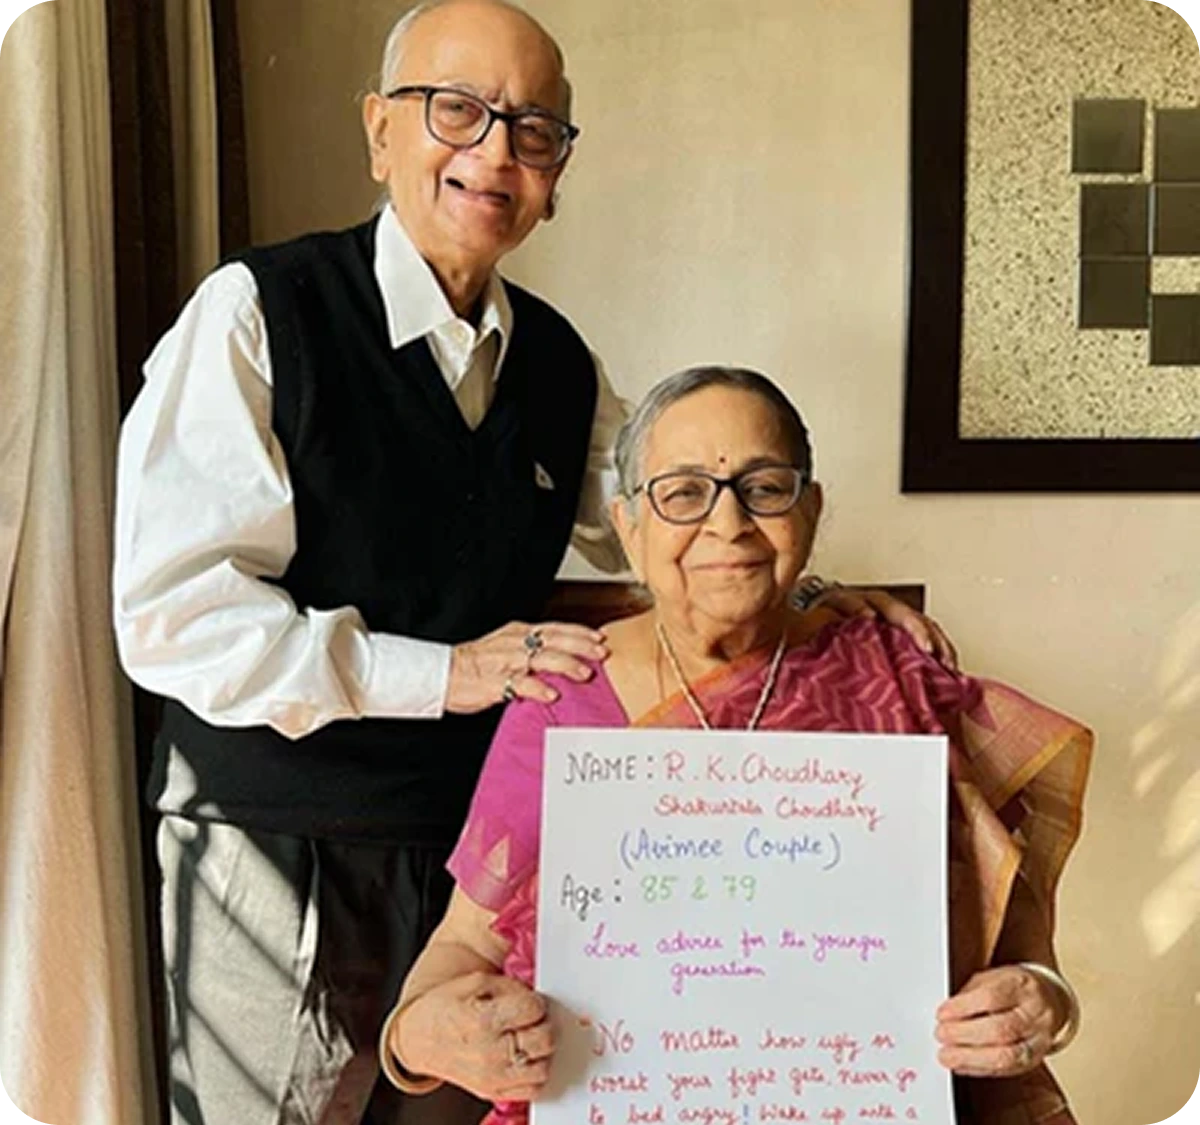 NAME: R. K. Choudhary
Shakuntala Choudhary
(Avimee Couple)
Age: 85 & 79
Love advice for the younger
generation
"No matter how ugly or
worst your fight gets, never go
to bed angry! Wake up with a